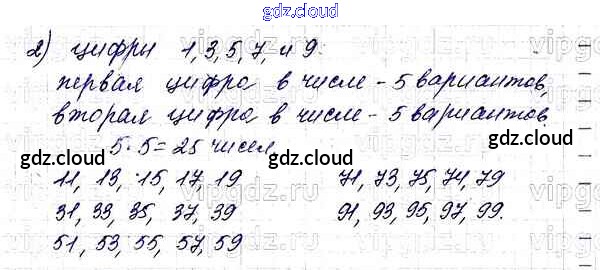 gdz.cloud
2) цифры 1, 3, 5, 7, и 9.
первая цифра в числе - 5 вариантов,
вторая цифра в числе - 5 вариантов
5·5=25 чисел
gdz.cloud gdz.cloud gdz.cloud
11, 13, 15, 17, 19 71, 73, 75, 74, 79
31, 33, 35, 37, 39 91, 93, 95, 97, 99.
51, 53, 55, 57, 59